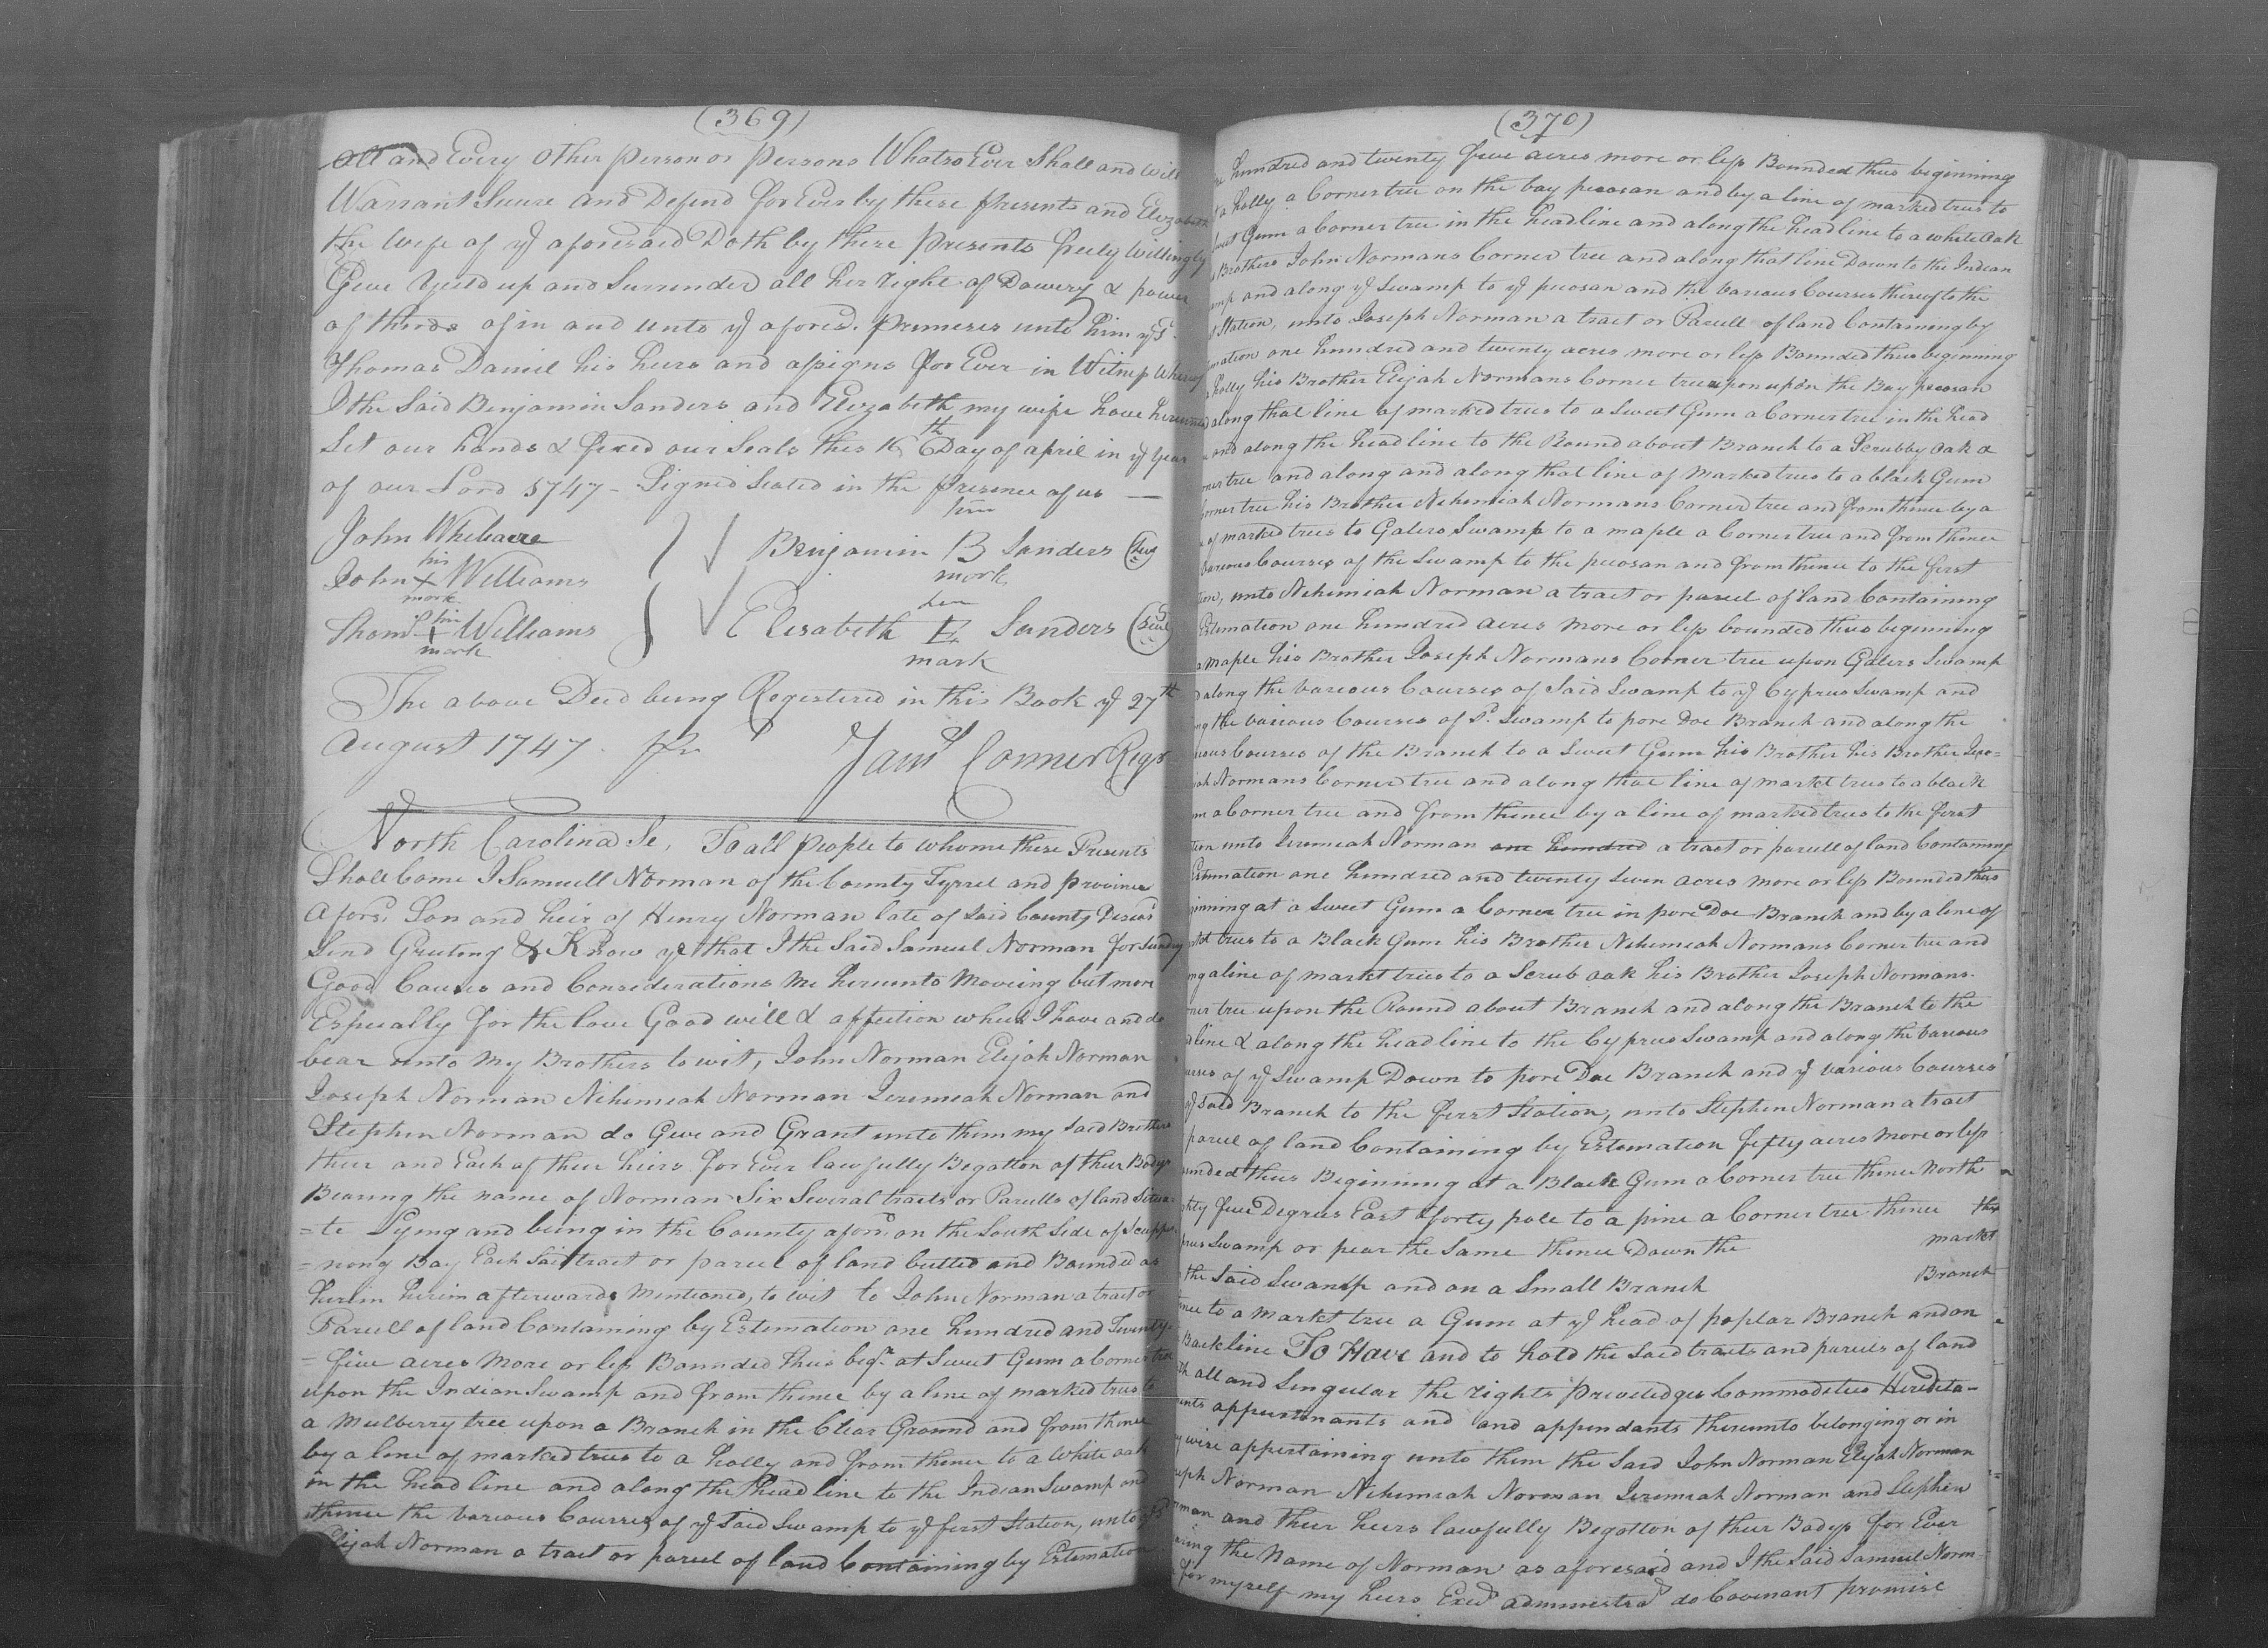 (369)
All and Every Other person or persons WhatsoEver Shall and will
Warrant Secure and Defend for Ever by these presents and Elizabeth
the Wife of ye aforesaid Doth by these presents freely Willingly
Give Yeeld up and Surrender all her right of Dowery & power
of thirds of in and unto ye afored. premeses unto him ye sd
Thomas Daniel his heirs and assigns for Ever in Witness Whereof
I the Said Benjamin Sanders and Elezabeth my wife have hereunto
Set our hands & fixed our Seals this 16th Day of april in ye year
of our Lord 5747 - Signed Sealed in the presence of us —
John Whebacre
John his X mark Williams
Thoms his + mark Williams
Benjamin his B mark Sanders (Seal)
Elesabeth her E mark Sanders (Seal)
The above Deed being Regestered in this Book ye 27th
August 1747. pr Jams Conner Regr
North Carolina Sc, To all people to whome these Presents
Shall Come I Samuell Norman of the County Tyrrel and province
Aforsd Son and heir of Henry Norman late of Said County Decesd
Send Greeting & Know ye that I the Said Samuel Norman for Sundry
Good Causes and Considerations me hereunto Moveing but more
Especially for the love Good will & affection which I have and do
bear unto my Brothers to wit, John Norman Elijah Norman
Joseph Norman Nehemiah Norman Jeremiah Norman and
Stephen Norman do Give and Grant unto them my Said Brothers
their and Each of their heirs for Ever lawfully Begotton of their Bodys
Bearing the name of Norman Six Several tracts or Parcells of land Situa=
=te Lying and being in the County aforsd on the South Side of Scupper
=nong Bay Each Said tract or parcel of land butted and Bounded as
herein herein afterwards Mentioned, to wit to John Norman a tract or
Parcell of land Containing by Estemation one hundred and Twenty=
=five acres More or less Bounded thus begg at Sweet Gum a Corner tree
upon the Indian Swamp and from thence by a line of marked trees to
a Mulberry tree upon a Branch in the Clear Ground and from thence
by a line of marked trees to a holly and from thence to a White oak
in the head line and along the head line to the Indian Swamp and
thence the various Courses of ye Said Swamp to ye first Station, unto
Elijah Norman a tract or parcel of land Containing by Estemation
(370)
hundred and twenty five acres more or less Bounded thus beginning
a holly a Corner tree on the bay pecosan and by a line of marked trees to
Sweet Gum a Corner tree in the head line and along the head line to a white Oak
Brothers John Normans Corner tree and along that line Down to the Indian
and along ye Swamp to ye pecosan and the various Courses thereof to the
Station, unto Joseph Norman a tract or Parcell of land Containing by
one hundred and twenty acres more or less Bounded thus beginning
holly his Brother Elijah Normans Corner tree upon upon the Bay pecosan
along that line of marked trees to a Sweet Gum a Corner tree in the head
and along the head line to the Round about Branch to a Scrubby Oak a
tree and along and along that line of marked trees to a black Gum
Corner tree his Brother Nehemiah Normans Corner tree and from thence by a
of marked trees to Galers Swamp to a maple a Corner tree and from thence
various Courses of the Swamp to the pecosan and from thence to the first
unto Nehemiah Norman a tract or parcel of land Containing
Estemation one hundred acres more or less bounded thus beginning
a maple his Brother Joseph Normans Corner tree upon Galers Swamp
along the various Courses of Said Swamp to ye Cyprus Swamp and
the various Courses of Sd Swamp to pore Doe Branch and along the
Courses of the Branch to a Sweet Gum his Brother his Brother Jere=
Normans Corner tree and along that line of markt trees to a black
a Corner tree and from thence by a line of marked trees to the first
unto Jeremiah Norman one hundred a tract or parcell of land Containing
Estemation one hundred and twenty Seven acres more or less Bounded thus
at a Sweet Gum a Corner tree in pore Doe Branch and by a line of
trees to a Black Gum his Brother Nehemiah Normans Corner tree and
a line of markt trees to a Scrub oak his Brother Joseph Normans
tree upon the Round about Branch and along the Branch to the
line & along the head line to the Cyprus Swamp and along the various
of ye Swamp Down to pore Doe Branch and ye various Courses
ye Said Branch to the first Station, unto Stephen Norman a tract
parcel of land Containing by Estemation fifty acres More or less
thus Beginning at a Black Gum a Corner tree thence North
five Degrees East forty pole to a pine a Corner tree thence the
Swamp or pear the Same thence Down the markt
the Said Swamp and on a Small Branch Branch
to a markt tree a Gum at ye head of poplar Branch and on
Back line To Have and to hold the Said tracts and parcels of land
all and Singular the rights Preveledges Commodeties Heredita=
appurtenants and and appendants thereunto belonging or in
wise appertaining unto them the Said John Norman Elijah Norman
Norman Nehemiah Norman Jeremiah Norman and Stephen
and their heirs lawfully Begotton of their Bodys for Ever
the Name of Norman as aforesaid and I the Said Samuel Norm=
for myself my heirs Exers administrs do Covenant promise